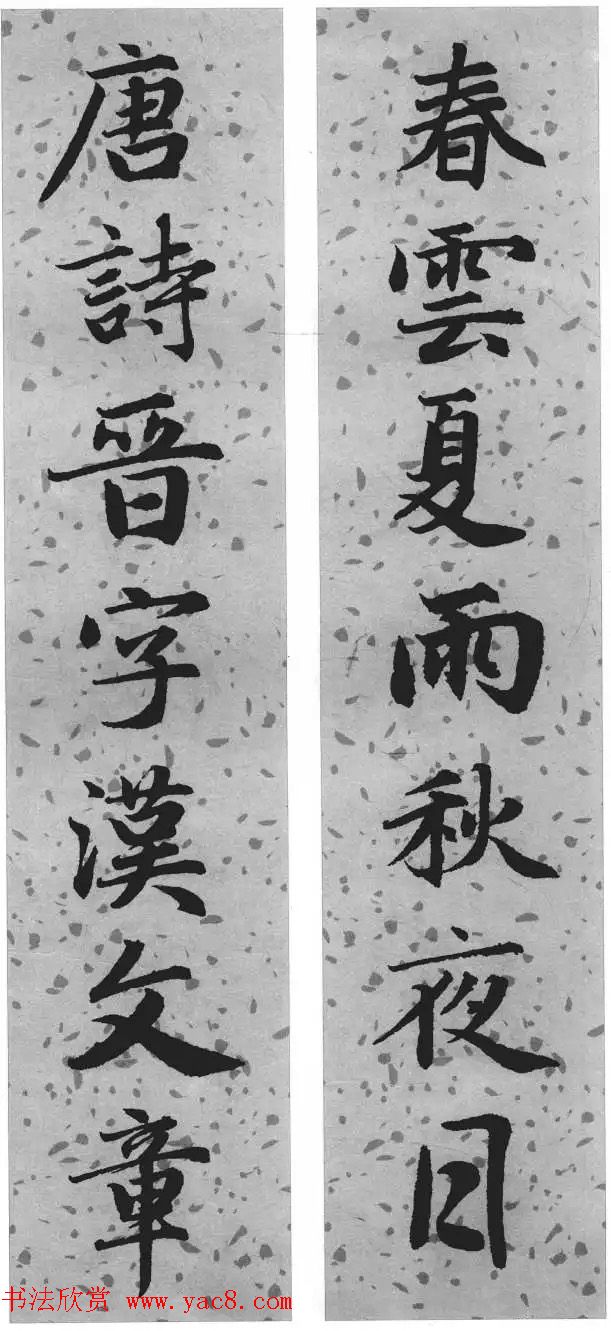 春雲夏雨秋夜月
唐詩晉字漢文章
书法欣赏 www.yac8.com